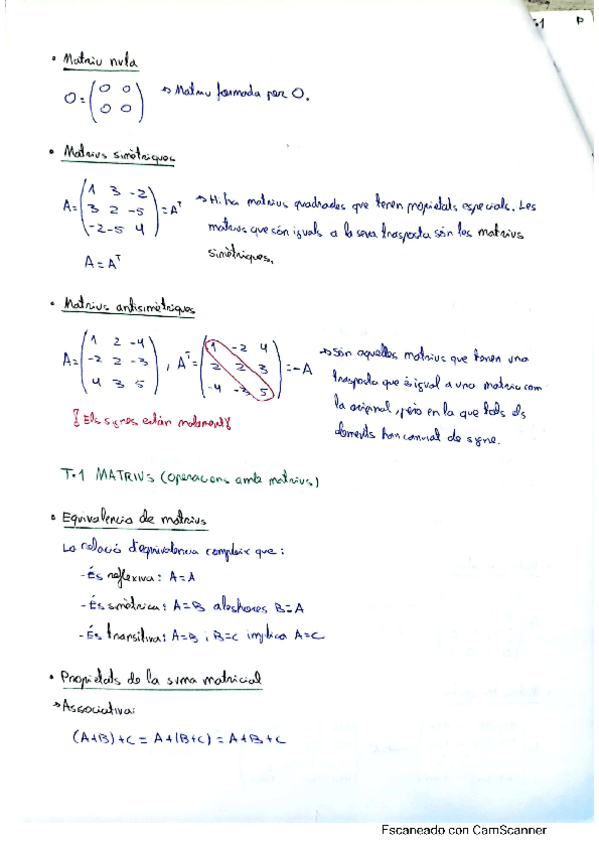 T.1 P
• Matriu nul·la
O = (0 0
0 0) → Matriu formada per O.
• Matrius simètriques
A = (1 3 -2
3 2 -5
-2 -5 4) = Aᵀ → Hi ha matrius quadrades que tenen propietats especials. Les
matrius que són iguals a la seva trasposta són les matrius
simètriques.
A = Aᵀ
• Matrius antisimètriques
A = (1 2 -4
-2 2 -3
4 3 5) , Aᵀ = (1 -2 4
2 2 3
-4 -3 5) = -A → Són aquelles matrius que tenen una
trasposta que és igual a una matriu com
la original, però en la que tots els
elements han canviat de signe.
Els signes están malament
T.1 MATRIUS (operacions amb matrius)
• Equivalencia de matrius
La relació d'equivalencia compleix que:
- És reflexiva: A = A
- És simètrica: A = B aleshores B = A
- És transitiva: A = B i B = C implica A = C
• Propietats de la suma matricial
→ Associativa:
(A+B)+C = A+(B+C) = A+B+C
Escaneado con CamScanner